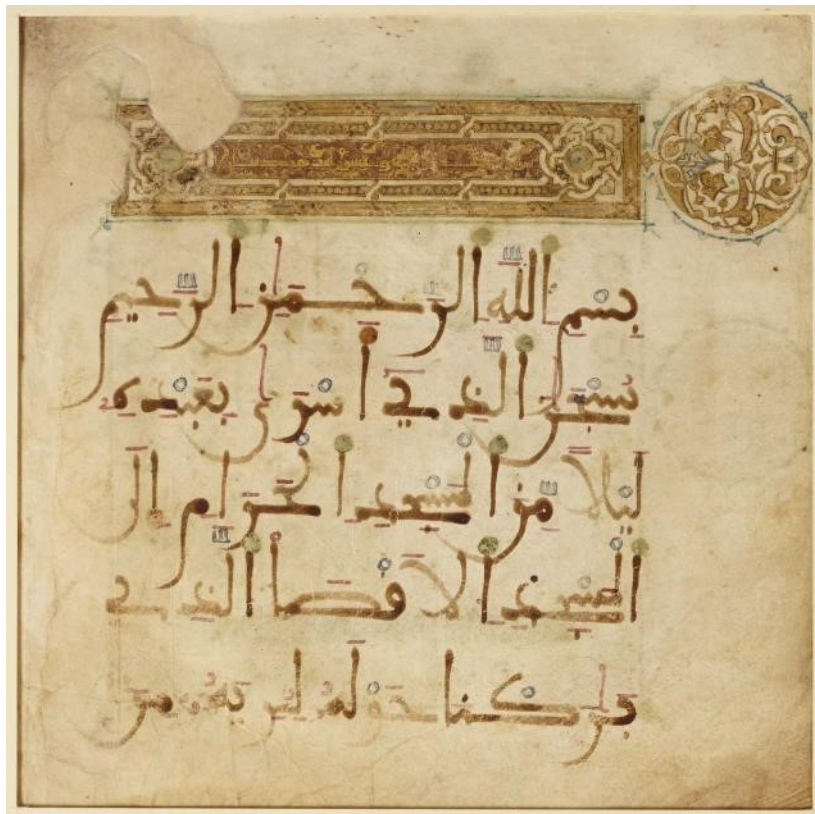 بسم الله الرحمن الرحيم
سبحن الذي أسرى بعبده
ليلا من المسجد الحرام إلى
المسجد الأقصا الذي
بركنا حوله لنريه من